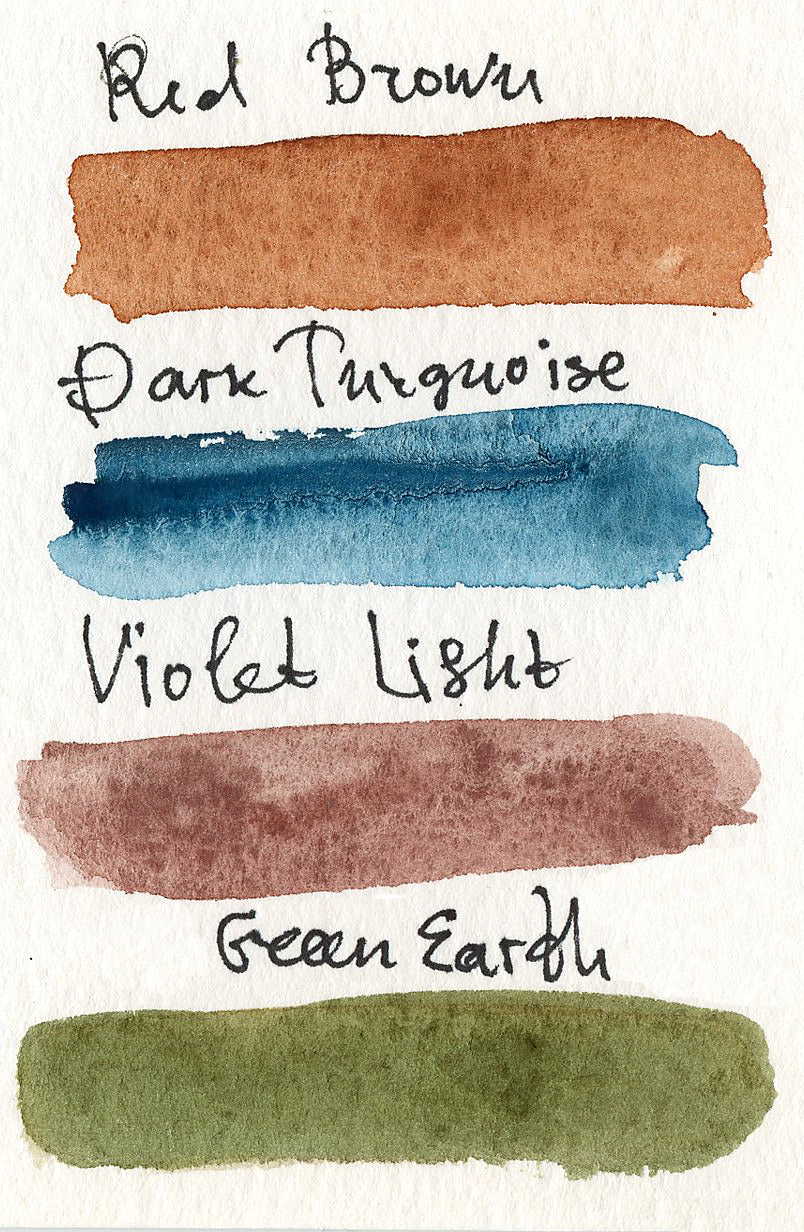 Red Brown
Dark Turquoise
Violet Light
Green Earth